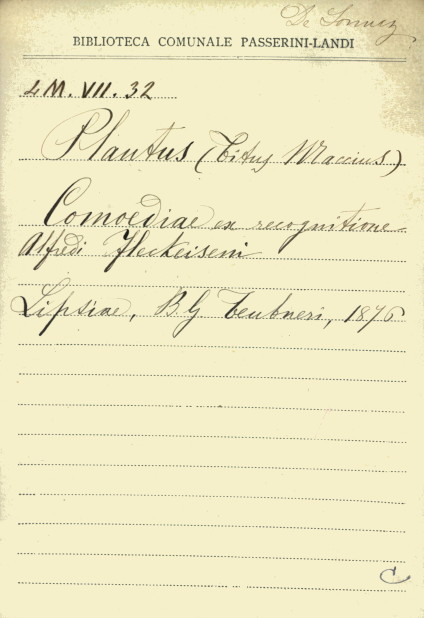 De
BIBLIOTECA COMUNALE PASSERINI-LANDI
4 M. VII. 32
Plautus (Titus Maccius)
Comoediae ex recognitione
Alfredi Fleckeiseni
Lipsiae, B.G Teubneri, 1876
C